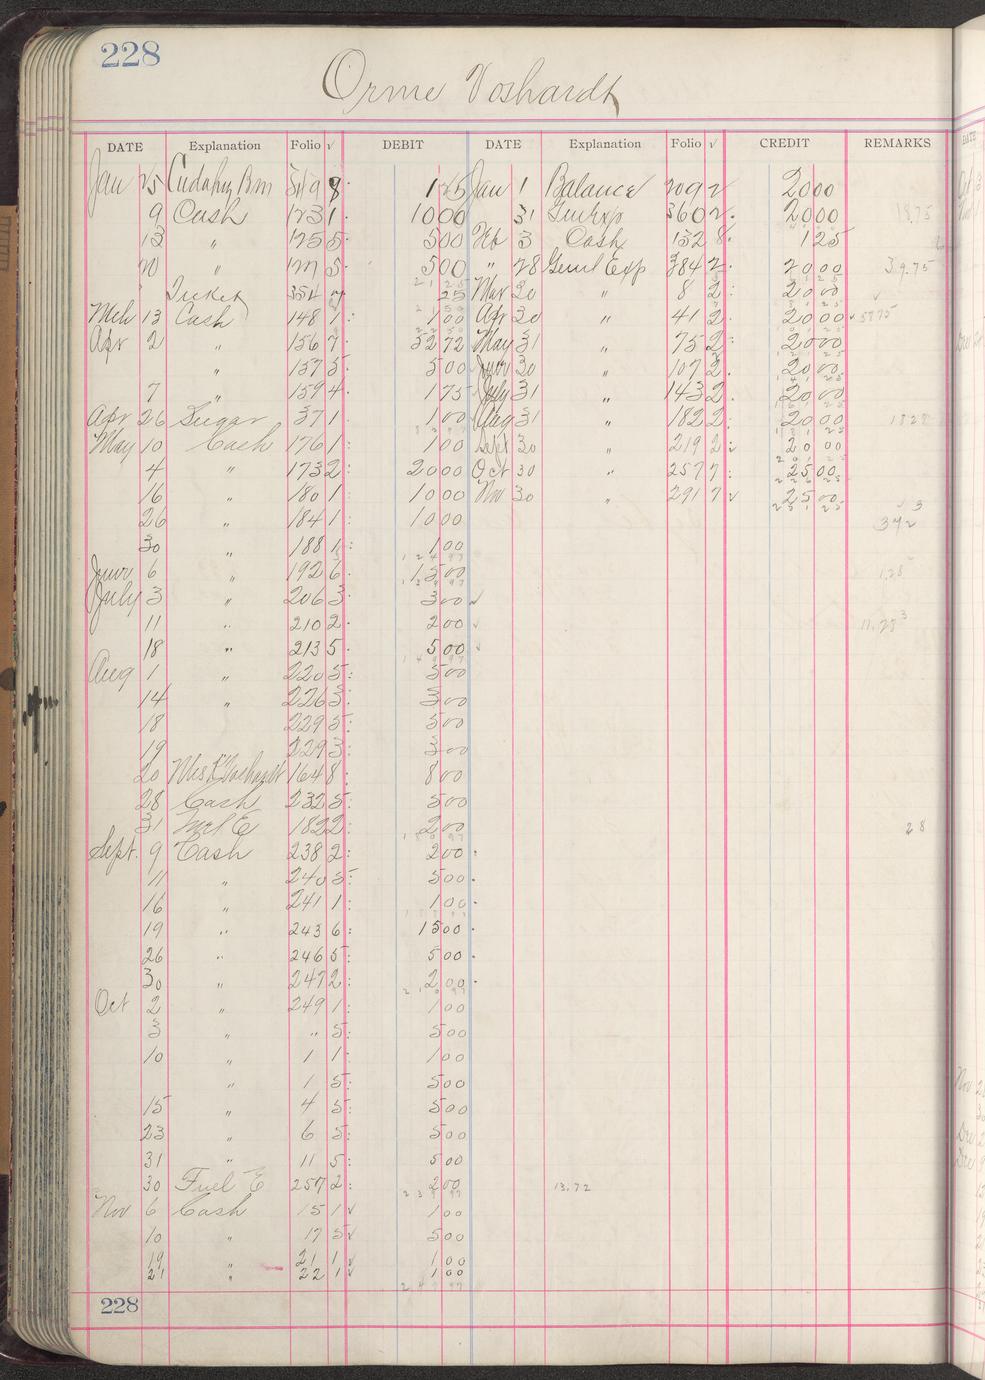 228
Orme Voshardt
DATE Explanation Folio √ DEBIT DATE Explanation Folio √ CREDIT REMARKS
Jan 25 Cudahy 8 1 25 Jan 1 Balance 209 2 20 00
9 Cash 123 1 10 00 31 Genl Exp 360 2 20 00 18.75
13 " 125 5 5 00 Feb 3 Cash 132 8 1 25
20 " 127 5 5 00 " 28 Genl Exp 384 2 20 00 39.75
Ticket 354 7 25 Mar 30 " 8 2 20 00
Mch 13 Cash 148 1 1 00 Apr 30 " 41 2 20 00 58 75
Apr 2 " 156 7 52 72 May 31 " 75 2 20 00
" 157 5 5 00 June 30 " 107 2 20 00
7 " 159 4 1 75 July 31 " 143 2 20 00
Apr 26 Sugar 37 1 1 00 Aug 31 " 182 2 20 00 18 28
May 10 Cash 176 1 1 00 Sept 30 " 219 2 20 00
4 " 173 2 20 00 Oct 30 " 257 7 25 00
16 " 180 1 10 00 Nov 30 " 291 7 √ 25 00
26 " 184 1 10 00 372
30 " 188 1 1 00
June 6 " 192 6 15 00 1.28
July 3 " 206 3 3 00 √
11 " 210 2 2 00 √ 11.28
18 " 213 5 5 00 √
Aug 1 " 220 5 5 00
14 " 226 3 3 00
18 229 5 5 00
19 229 3 3 00
20 Mrs Voshardt 164 8 8 00
28 Cash 232 5 5 00
31 Fuel E 182 2 2 00 28
Sept. 9 Cash 238 2 2 00
11 " 240 5 5 00
16 " 241 1 1 00
19 " 243 6 15 00
26 " 246 5 5 00
30 " 247 2 2 00
Oct 2 " 249 1 1 00
3 " " 5 5 00
10 " 1 1 1 00
" 1 5 5 00
15 " 4 5 5 00
23 " 6 5 5 00
31 " 11 5 5 00
30 Fuel E 257 2 2 00 13.72
Nov 6 Cash 15 1 √ 1 00
10 " 17 5 √ 5 00
19 " 21 1 √ 1 00
21 " 22 1 √ 1 00
228